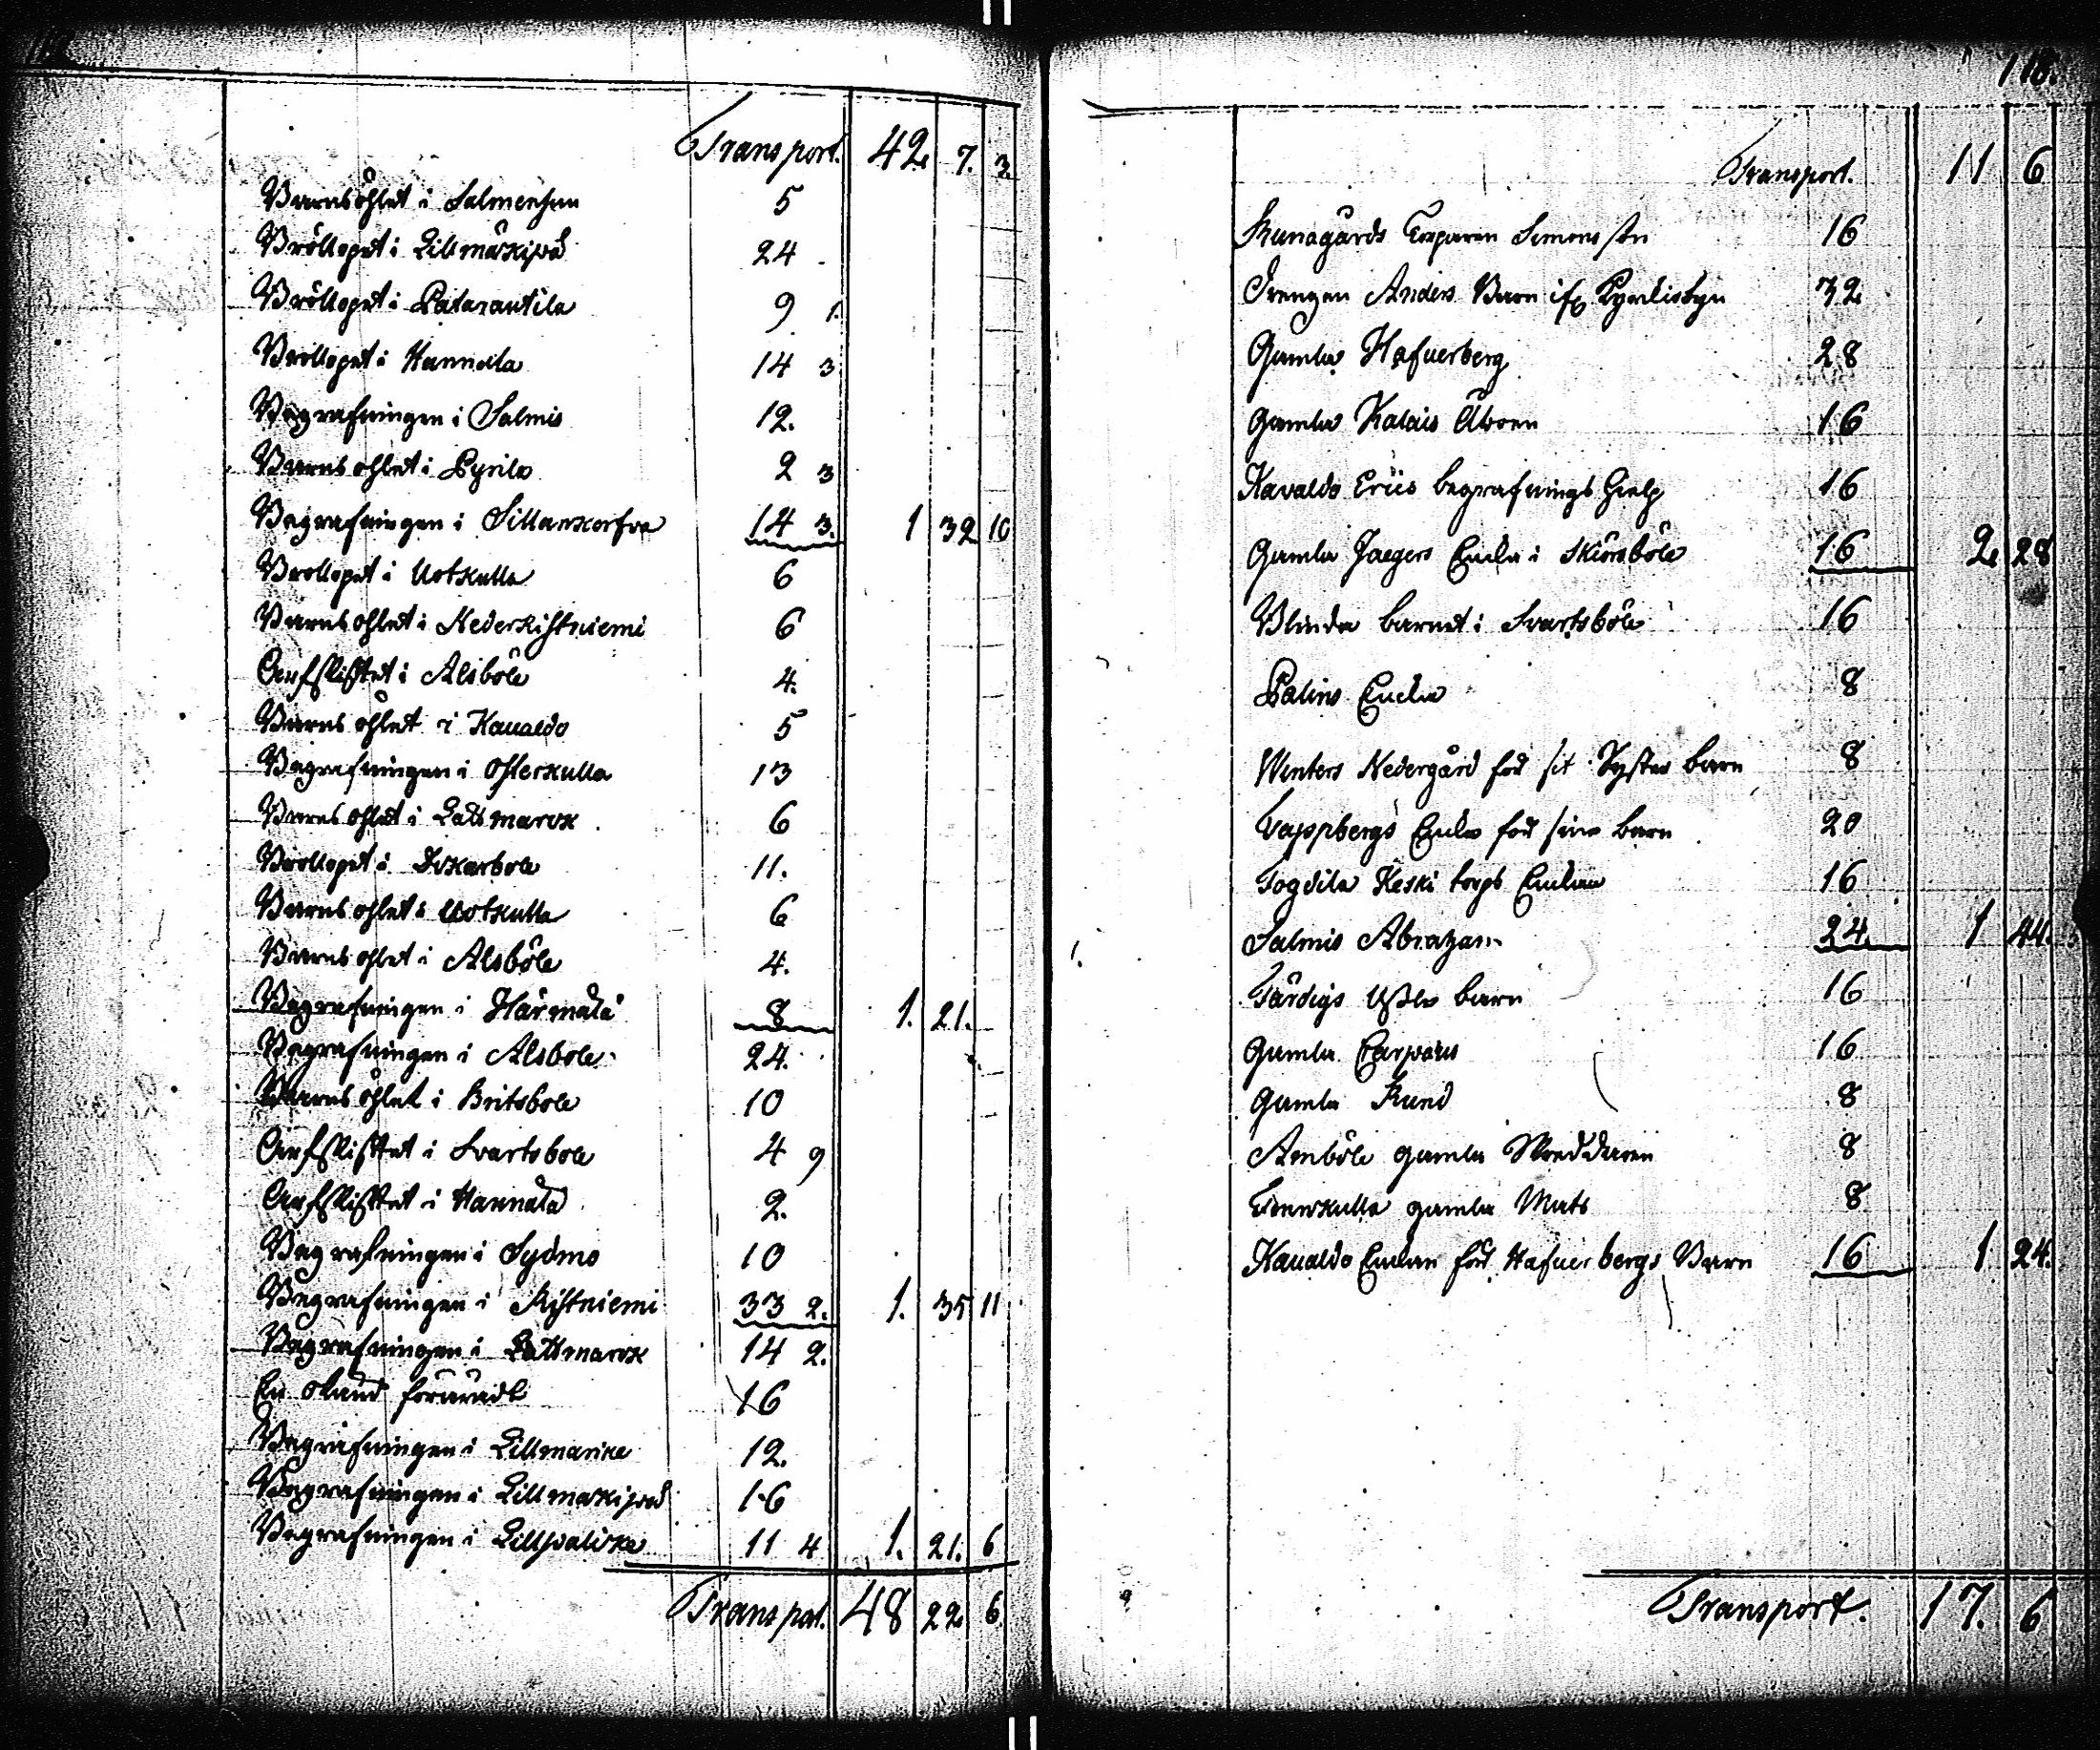 Transport. 42. 7. 3.
Barnsöhlet i Salmensun 5
Bröllopet i Lillmäkipää 24
Bröllopet i Patarautila 9 1.
Bröllopet i Hannula 14 3
Begrafningen i Salmis 12.
Barnsohlet i Pyrilä 2 3
Begrafningen i Sillankorfva 14 3. 1 32 10
Brollopet i Uotkulla 6
Barnsohlet i Nederkistniemi 6
Arfskiftet i Alsböle 4.
Barnsöhlet i Kaualdo 5
Begrafningen i Osterkulla 13
Barnsohlet i Lattmarck 6
Brollopet i Ickarbole 11.
Barnsohlet i Uotkulla 6
Barnsohlet i Alsböle 4.
Begrafningen i Härmälä 8 1. 21.
Begrafningen i Alsbole 24.
Barnsöhlet i Britsbole 10
Arfskiftet i Svartsbole 4 9
Arfskiftet i Hannula 2.
Begrafningen i Sydmo 10
Begrafningen i Kistniemi 33 2. 1. 35 11
Begrafningen i Lattmarck 14 2.
En okänd förärade 16
Begrafningen i Lillmarike 12.
Begrafningen i Lillmäkipää 16
Begrafningen i Lill 11 4 1. 21. 6
Transport. 48 22 6.
118.
Transport. 11 6
Kunagårds Torparen Simons son 16
Drengen Anders Barn ifr. 32
Gamla Hafverberg 28
Gamla Kalais 16
Kavaldo Erics begrafnings hielp 16
Gamla Jaegers Enka i Skinsböle 16 2. 28
Blinda barnet i Svartsböle 16
Palins Enka 8
Winters Nedergård för sit Syster barn 8
Vappbergs Enka för sina barn 20
Togdila Keski torps Enkan 16
Salmis Abraham 24. 1 44.
Färdigs Usla barn 16
Gamla 16
Gamla Rund 8
Amböle gamla Skreddaren 8
gamla Mats 8
Kaualdo Enkan för Hafverbergs Barn 16 1 24.
Transport. 17. 6